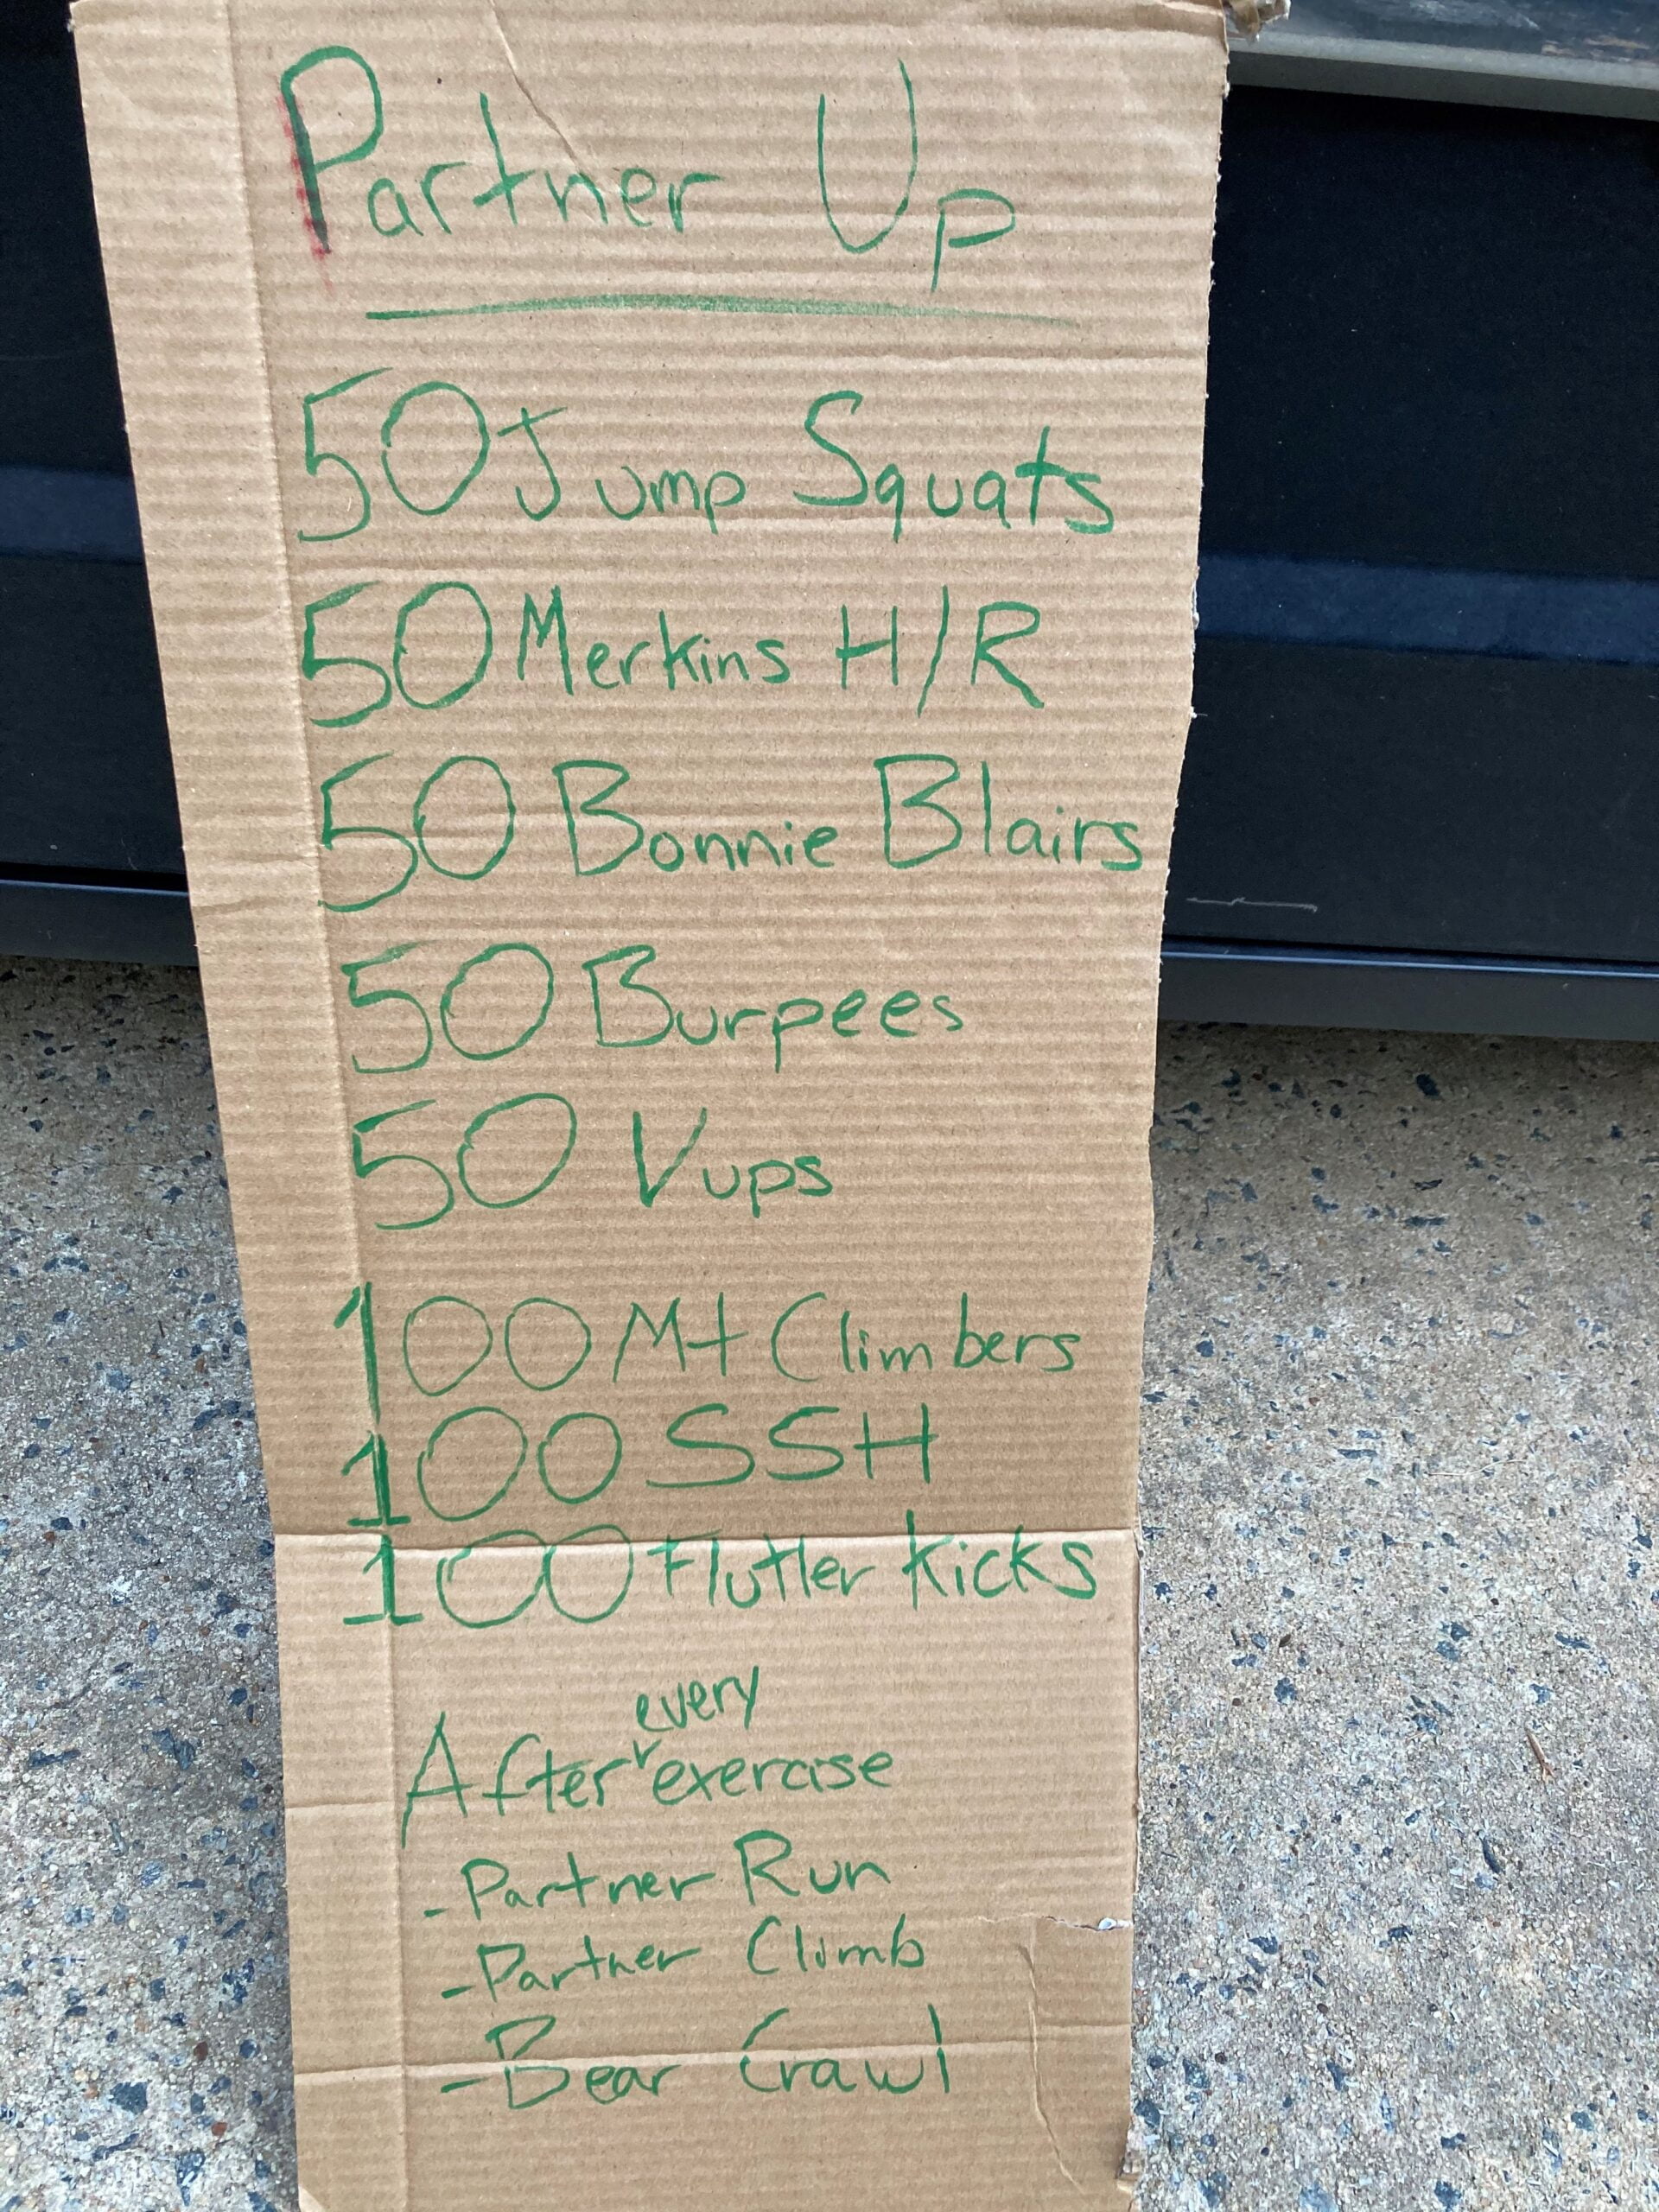 Partner Up
50 Jump Squats
50 Merkins H/R
50 Bonnie Blairs
50 Burpees
50 Vups
100 Mt Climbers
100 SSH
100 Flutter Kicks
After every exercise
- Partner Run
- Partner Climb
- Bear Crawl